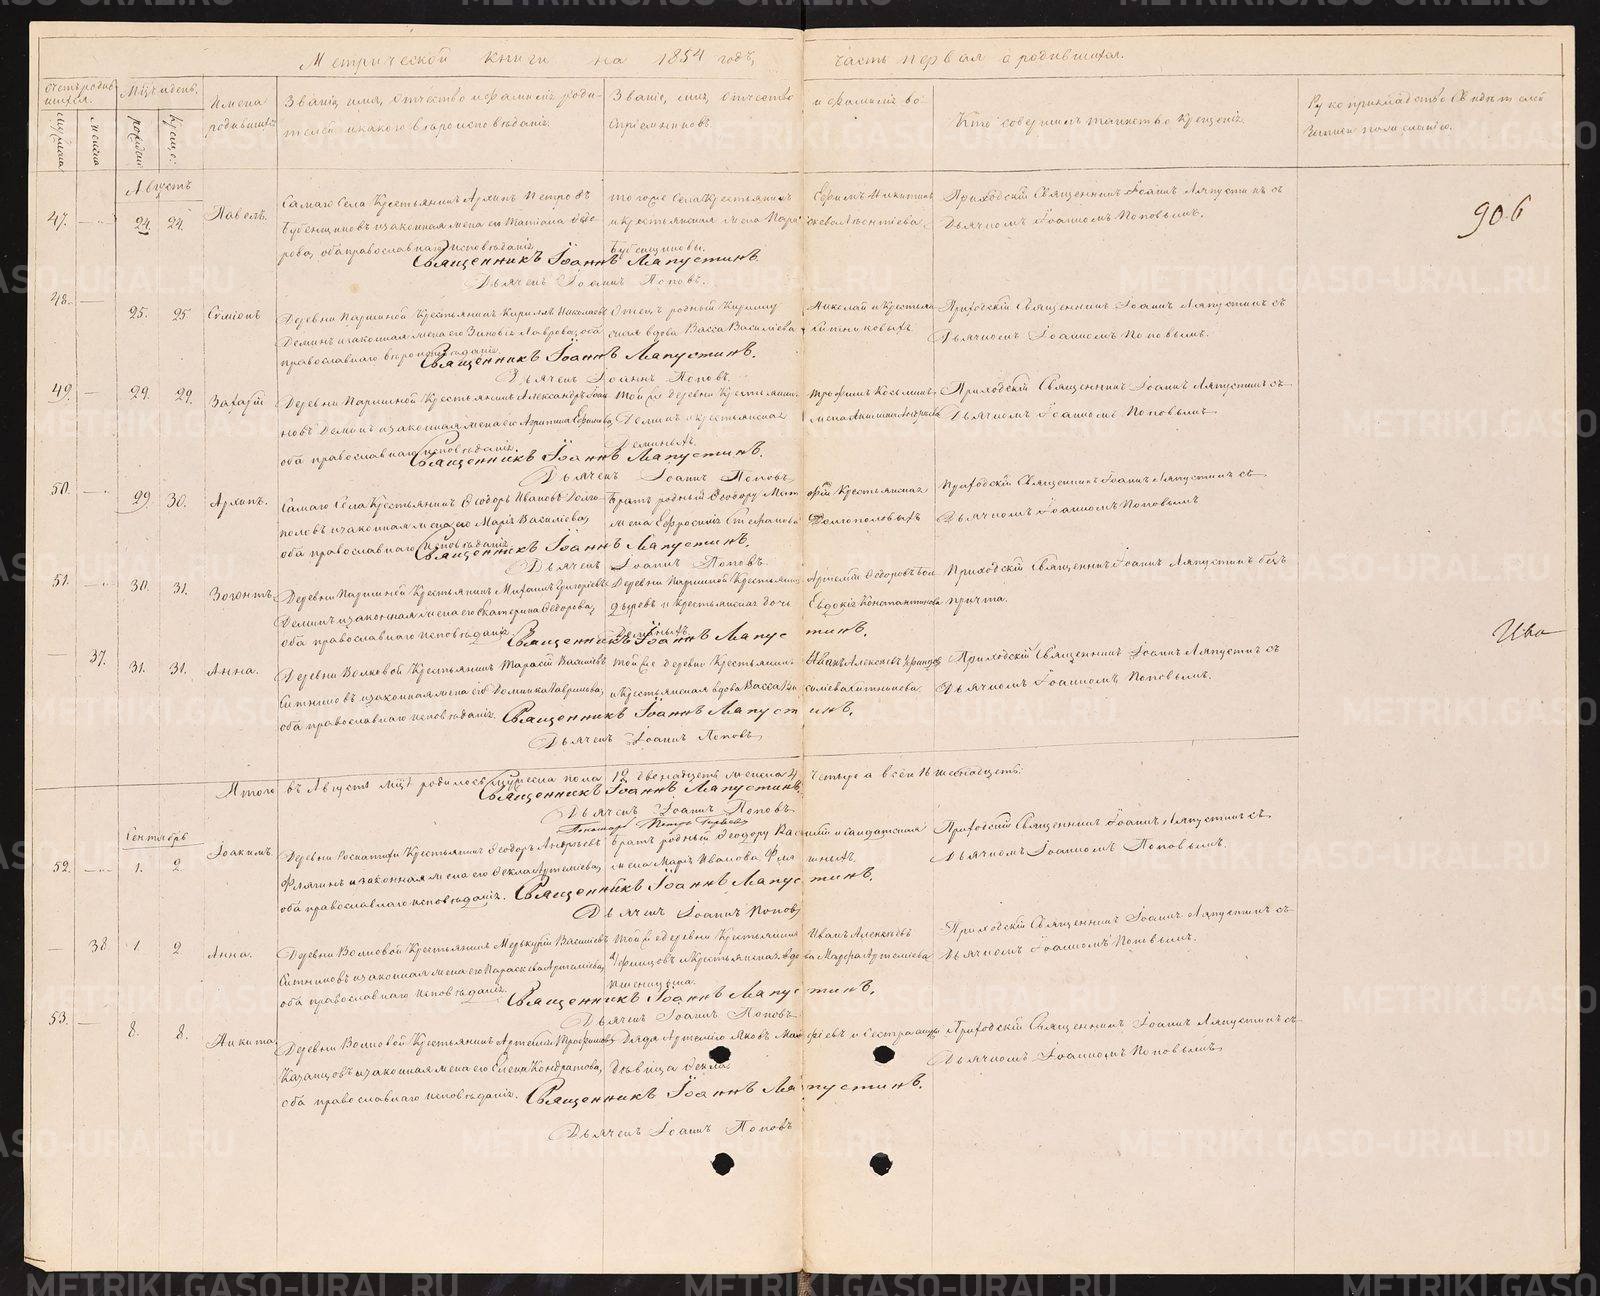 Метрической книги на 1854 годъ,
часть первая о родившихся.
Счетъ родившихся.
Мѣсяцъ и день.
Имена родившихся
Званіе, имя, отчество и фамилія родителей, и какого вѣроисповѣданія.
Званіе, имя, отчество и фамилія воспріемниковъ.
Кто совершалъ таинство крещенія.
Рукоприкладство свидѣтелей записи по желанію.
мужеска
женска
рожденія
крещенія
906
Августъ
47. 24. 24. Павелъ.
Самаго Села Крестьянинъ Архипъ Петровъ
Бубенщиковъ и законная жена его Татіана Ѳедо-
рова, оба православнаго исповѣданія
того же Села Крестьянинъ Ефимъ Никитинъ
и крестьянская жена Параскева Леонтіева
Бубенщиковы.
Приходскій Священникъ Іоаннъ Ляпустинъ съ
Дьячкомъ Іоанномъ Поповымъ.
Священникъ Іоаннъ Ляпустинъ.
Дьячекъ Іоаннъ Поповъ.
48. 25. 25 Симеонъ
Деревни Паршиной Крестьянинъ Кириллъ Николаевъ
Деминъ и законная жена его Зиновія Лаврова, оба
православнаго вѣроисповѣданія
Отецъ родный Кириллу Николай и Крестьян-
ская вдова Васса Василіева Ситниковыхъ
Приходскій Священникъ Іоаннъ Ляпустинъ съ
Дьячкомъ Іоанномъ Поповымъ.
Священникъ Іоаннъ Ляпустинъ.
Дьячекъ Іоаннъ Поповъ
49. 29. 29. Захарій
Деревни Паршиной Крестьянинъ Александръ Іоан-
новъ Деминъ и законная жена его Агрипина Ефимова,
оба православнаго исповѣданія.
той же деревни Крестьянинъ Трофимъ Козьминъ
Деминъ и крестьянская жена Акилина Андреева
Деминыхъ.
Приходскій Священникъ Іоаннъ Ляпустинъ съ
Дьячкомъ Іоанномъ Поповымъ
Священникъ Іоаннъ Ляпустинъ.
Дьячекъ Іоаннъ Поповъ
50. 29 30. Архипъ.
Самаго Села Крестьянинъ Ѳеодоръ Ивановъ Долго-
половъ и законная жена его Марія Василіева,
оба православнаго исповѣданія
Братъ родный Ѳеодору и Крестьянская
жена Ефросинія Стефанова Долгополовыхъ
Приходскій Священникъ Іоаннъ Ляпустинъ съ
Дьячкомъ Іоанномъ Поповымъ
Священникъ Іоаннъ Ляпустинъ.
Дьячекъ Іоаннъ Поповъ.
51. 30. 31. Зогонтъ.
Деревни Паршиной Крестьянинъ Михаилъ Григоріевъ
Деминъ и законная жена его Екатерина Ѳеодорова,
оба православнаго исповѣданія.
Деревни Паршиной Крестьянинъ Артемій Ѳедоровъ Бон-
дыревъ и крестьянская дочь Евдокія Константинова
Деминыхъ
Приходскій Священникъ Іоаннъ Ляпустинъ безъ
причта.
Священникъ Іоаннъ Ляпустинъ.
37. 31. 31. Анна.
Деревни Волковой Крестьянинъ Тарасій Василіевъ
Ситниковъ и законная жена его Домника Гаврилова,
оба православнаго исповѣданія.
той же деревни Крестьянинъ Иванъ Алексѣевъ
и Крестьянская вдова Васса Василіева Ситникова.
Приходскій Священникъ Іоаннъ Ляпустинъ съ
Дьячкомъ Іоанномъ Поповымъ.
Священникъ Іоаннъ Ляпустинъ.
Дьячекъ Іоаннъ Поповъ
Итого въ Августѣ м-цѣ родилось мужеска пола 12 двенадцать женска 4 четыре а всѣхъ 16 шеснадцеть.
Священникъ Іоаннъ Ляпустинъ.
Дьячекъ Іоаннъ Поповъ
Сентябрь
52. 1. 2. Іоакимъ.
Крестьянинъ Ѳеодоръ Андреевъ
Флягинъ и законная жена его Ѳекла Артеміева,
оба православнаго исповѣданія.
Братъ родный Ѳеодору Василій и Солдатская
жена Марія Иванова Флягиныхъ.
Приходскій Священникъ Іоаннъ Ляпустинъ съ
Дьячкомъ Іоанномъ Поповымъ.
Священникъ Іоаннъ Ляпустинъ.
Дьячекъ Іоаннъ Поповъ
38 1. 2 Анна.
Деревни Волковой Крестьянинъ Меркурій Василіевъ
Ситниковъ и законная жена его Параскева Артеміева,
оба православнаго исповѣданія.
той же деревни Крестьянинъ Иванъ Алексѣевъ
и Крестьянская вдова Марфа Артеміева
Приходскій Священникъ Іоаннъ Ляпустинъ съ
Дьячкомъ Іоанномъ Поповымъ.
Священникъ Іоаннъ Ляпустинъ.
Дьячекъ Іоаннъ Поповъ
53. 8. 8. Никита
Деревни Волковой Крестьянинъ Артемій Трофимовъ
Казанцовъ и законная жена его Елена Кондратова,
оба православнаго исповѣданія.
Дядя Артемію Яковъ и Сестра
Дѣвица Ѳекла.
Приходскій Священникъ Іоаннъ Ляпустинъ съ
Дьячкомъ Іоанномъ Поповымъ
Священникъ Іоаннъ Ляпустинъ.
Дьячекъ Іоаннъ Поповъ
METRIKI.GASO-URAL.RU